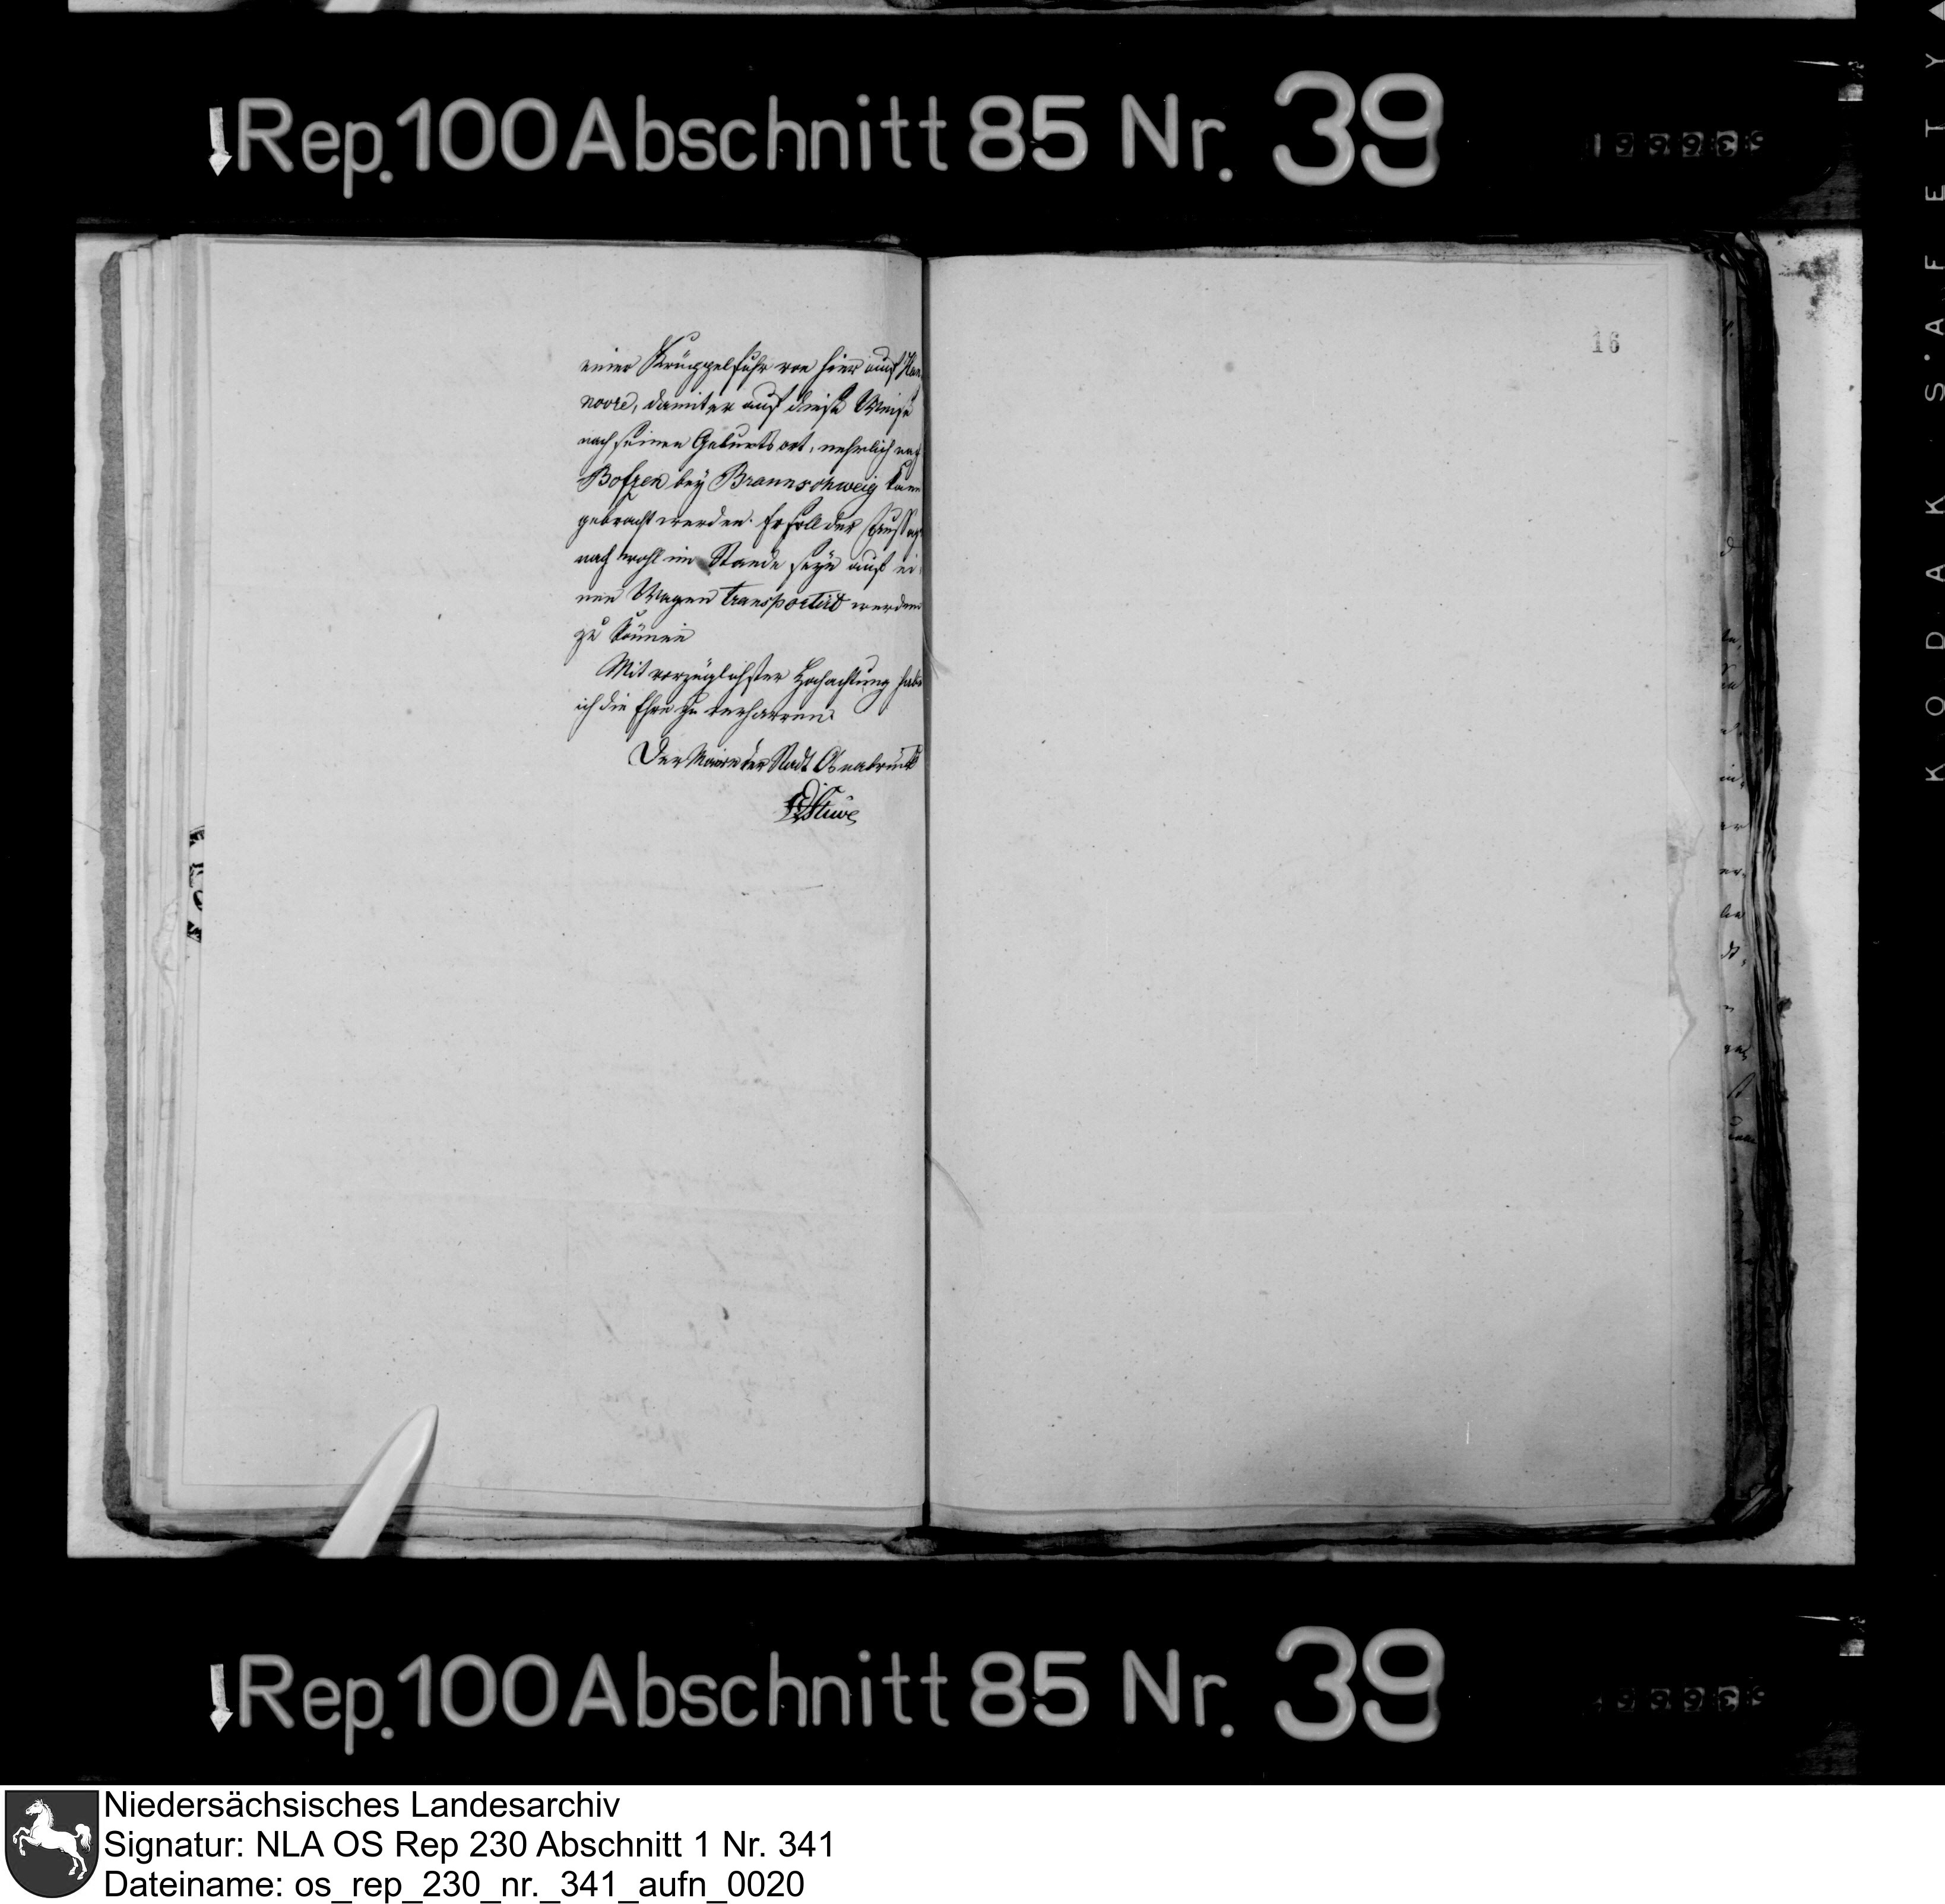 Rep. 100 Abschnitt 85 Nr. 39
199939
einer Krüppelfuhr von hier auf Han
nover, damit er auf diese Weise
nach seinen Geburtsort, nehmlich nach
Bofzen bey Braunschweig kann
gebracht werden. Er soll der Aussage
nach wohl im Stande seyn auf ei
nen Wagen transportirt werden
zu können
Mit vorzüglichster Hochachtung habe
ich die Ehre zu verharren
Der Maire der Stadt Osnabrück
Stüve
16
KODAK SAFETY
Rep. 100 Abschnitt 85 Nr. 39
Niedersächsisches Landesarchiv
Signatur: NLA OS Rep 230 Abschnitt 1 Nr. 341
Dateiname: os_rep_230_nr._341_aufn_0020